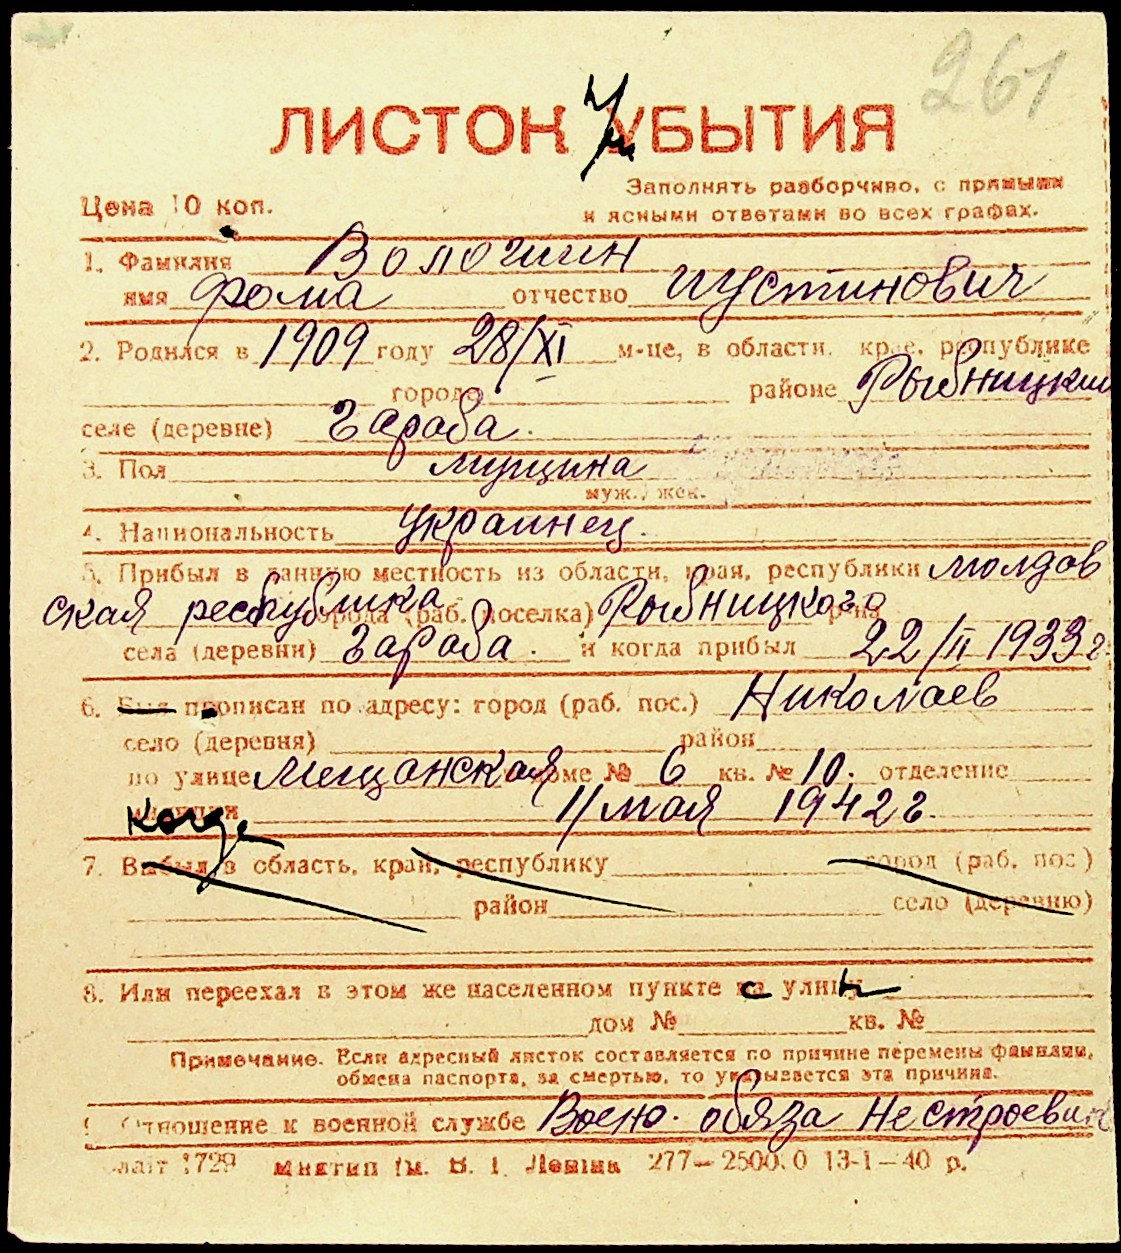 261
ЛИСТОК УБЫТИЯ
Цена 10 коп.
Заполнять разборчиво, с прямыми
и ясными ответами во всех графах.
1. Фамилия Волошин
имя Фома отчество Иустинович
2. Родился в 1909 году 28/XI м-це, в области, крае, республике
городе районе Рыбницкий
селе (деревне) Гароба.
3. Пол мущина
муж., жен.
4. Национальность украинец.
5. Прибыл в данную местность из области, края, республики молдов
ская республика города (раб. поселка) Рыбницкого р-на
села (деревни) Гароба. и когда прибыл 22/II 1933 г.
6. Был прописан по адресу: город (раб. пос.) Николаев
село (деревня) район
по улице Мещанская доме № 6 кв. № 10. отделение
милиции когда 11 мая 1942 г.
7. Выбыл в область, край, республику город (раб. пос.)
район село (деревню)
8. Или переехал в этом же населенном пункте с улицы
дом № кв. №
Примечание. Если адресный листок составляется по причине перемены фамилии,
обмена паспорта, за смертью, то указывается эта причина.
9. Отношение к военной службе Воено. обяза Нестроевик
1729 им. В. І. Леніна 277—25000 13-1—40 р.